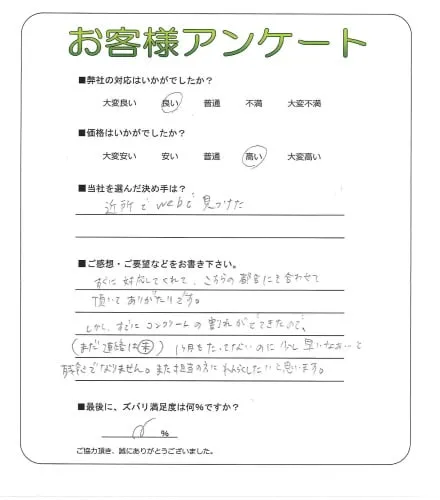 お客様アンケート
■弊社の対応はいかがでしたか？
大変良い 良い 普通 不満 大変不満
■価格はいかがでしたか？
大変安い 安い 普通 高い 大変高い
■当社を選んだ決め手は？
近所でwebで見つけた
■ご感想・ご要望などをお書き下さい。
すぐに対応してくれて、こちらの都合にも合わせて
頂いてありがたいです。
しかし、すでにコンクリートの割れがでてきたので、
(まだ連絡は㊍) 1ヶ月もたってないのに少し早いなぁ〜と
残念でなりません。また担当の方にれんらくしたいと思います。
■最後に、ズバリ満足度は何%ですか？
%
ご協力頂き、誠にありがとうございました。